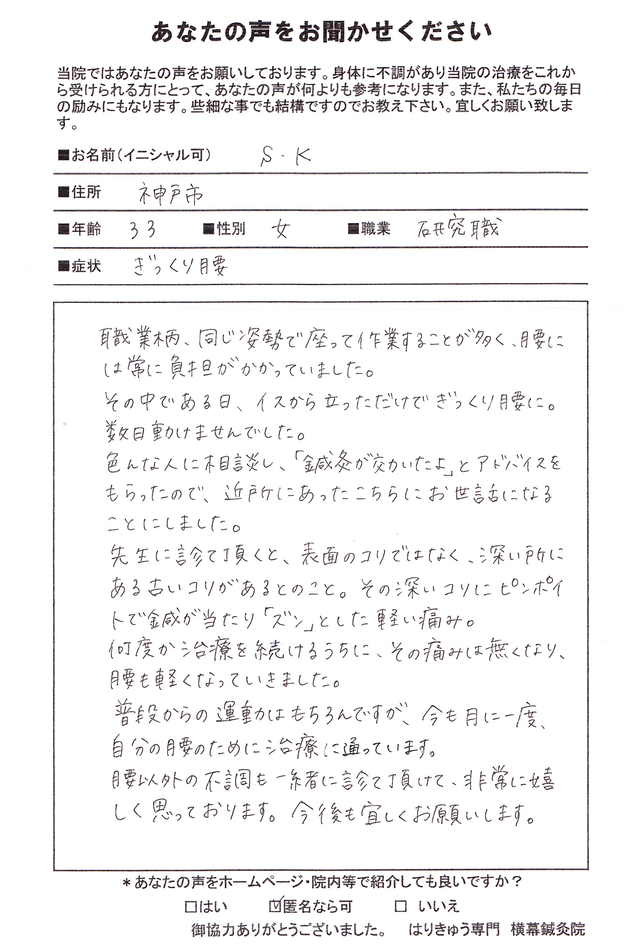 あなたの声をお聞かせください
当院ではあなたの声をお願いしております。身体に不調があり当院の治療をこれか
ら受けられる方にとって、あなたの声が何よりも参考になります。また、私たちの毎日
の励みにもなります。些細な事でも結構ですのでお教え下さい。宜しくお願い致しま
す。
■お名前(イニシャル可) S・K
■住所 神戸市
■年齢 33 ■性別 女 ■職業 研究職
■症状 ぎっくり腰
職業柄、同じ姿勢で座って作業することが多く、腰に
は常に負担がかかっていました。
その中である日、イスから立っただけでぎっくり腰に。
数日動けませんでした。
色んな人に相談し、「鍼灸が効いたよ」とアドバイスを
もらったので、近所にあったこちらにお世話になる
ことにしました。
先生に診て頂くと、表面のコリではなく、深い所に
ある古いコリがあるとのこと。その深いコリにピンポイ
トで鍼が当たり「ズン」とした軽い痛み。
何度か治療を続けるうちに、その痛みは無くなり、
腰も軽くなっていきました。
普段からの運動はもちろんですが、今も月に一度、
自分の腰のために治療に通っています。
腰以外の不調も一緒に診て頂けて、非常に嬉
しく思っております。今後も宜しくお願いします。
*あなたの声をホームページ・院内等で紹介しても良いですか?
□はい ☑匿名なら可 □ いいえ
御協力ありがとうございました。 はりきゅう専門 横幕鍼灸院